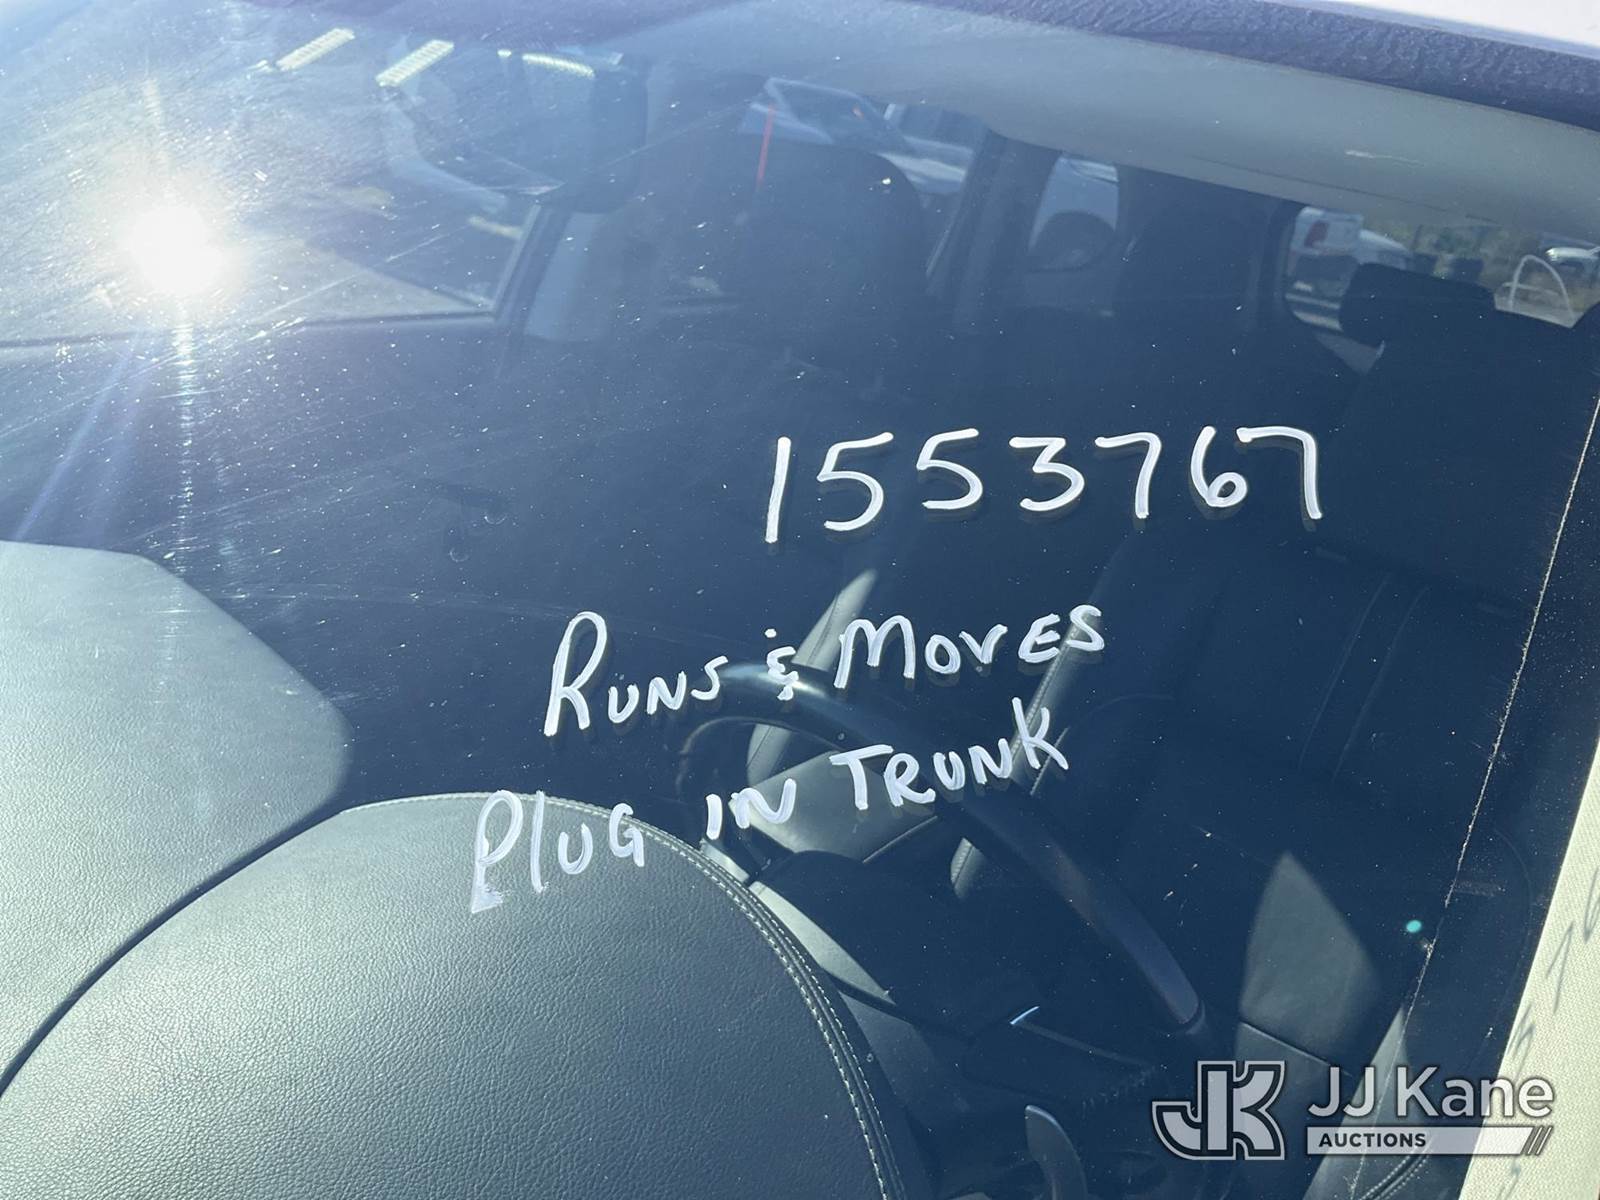 1553767
RUNS & MOVES
PlUG IN TRUNK
JK JJ Kane
AUCTIONS